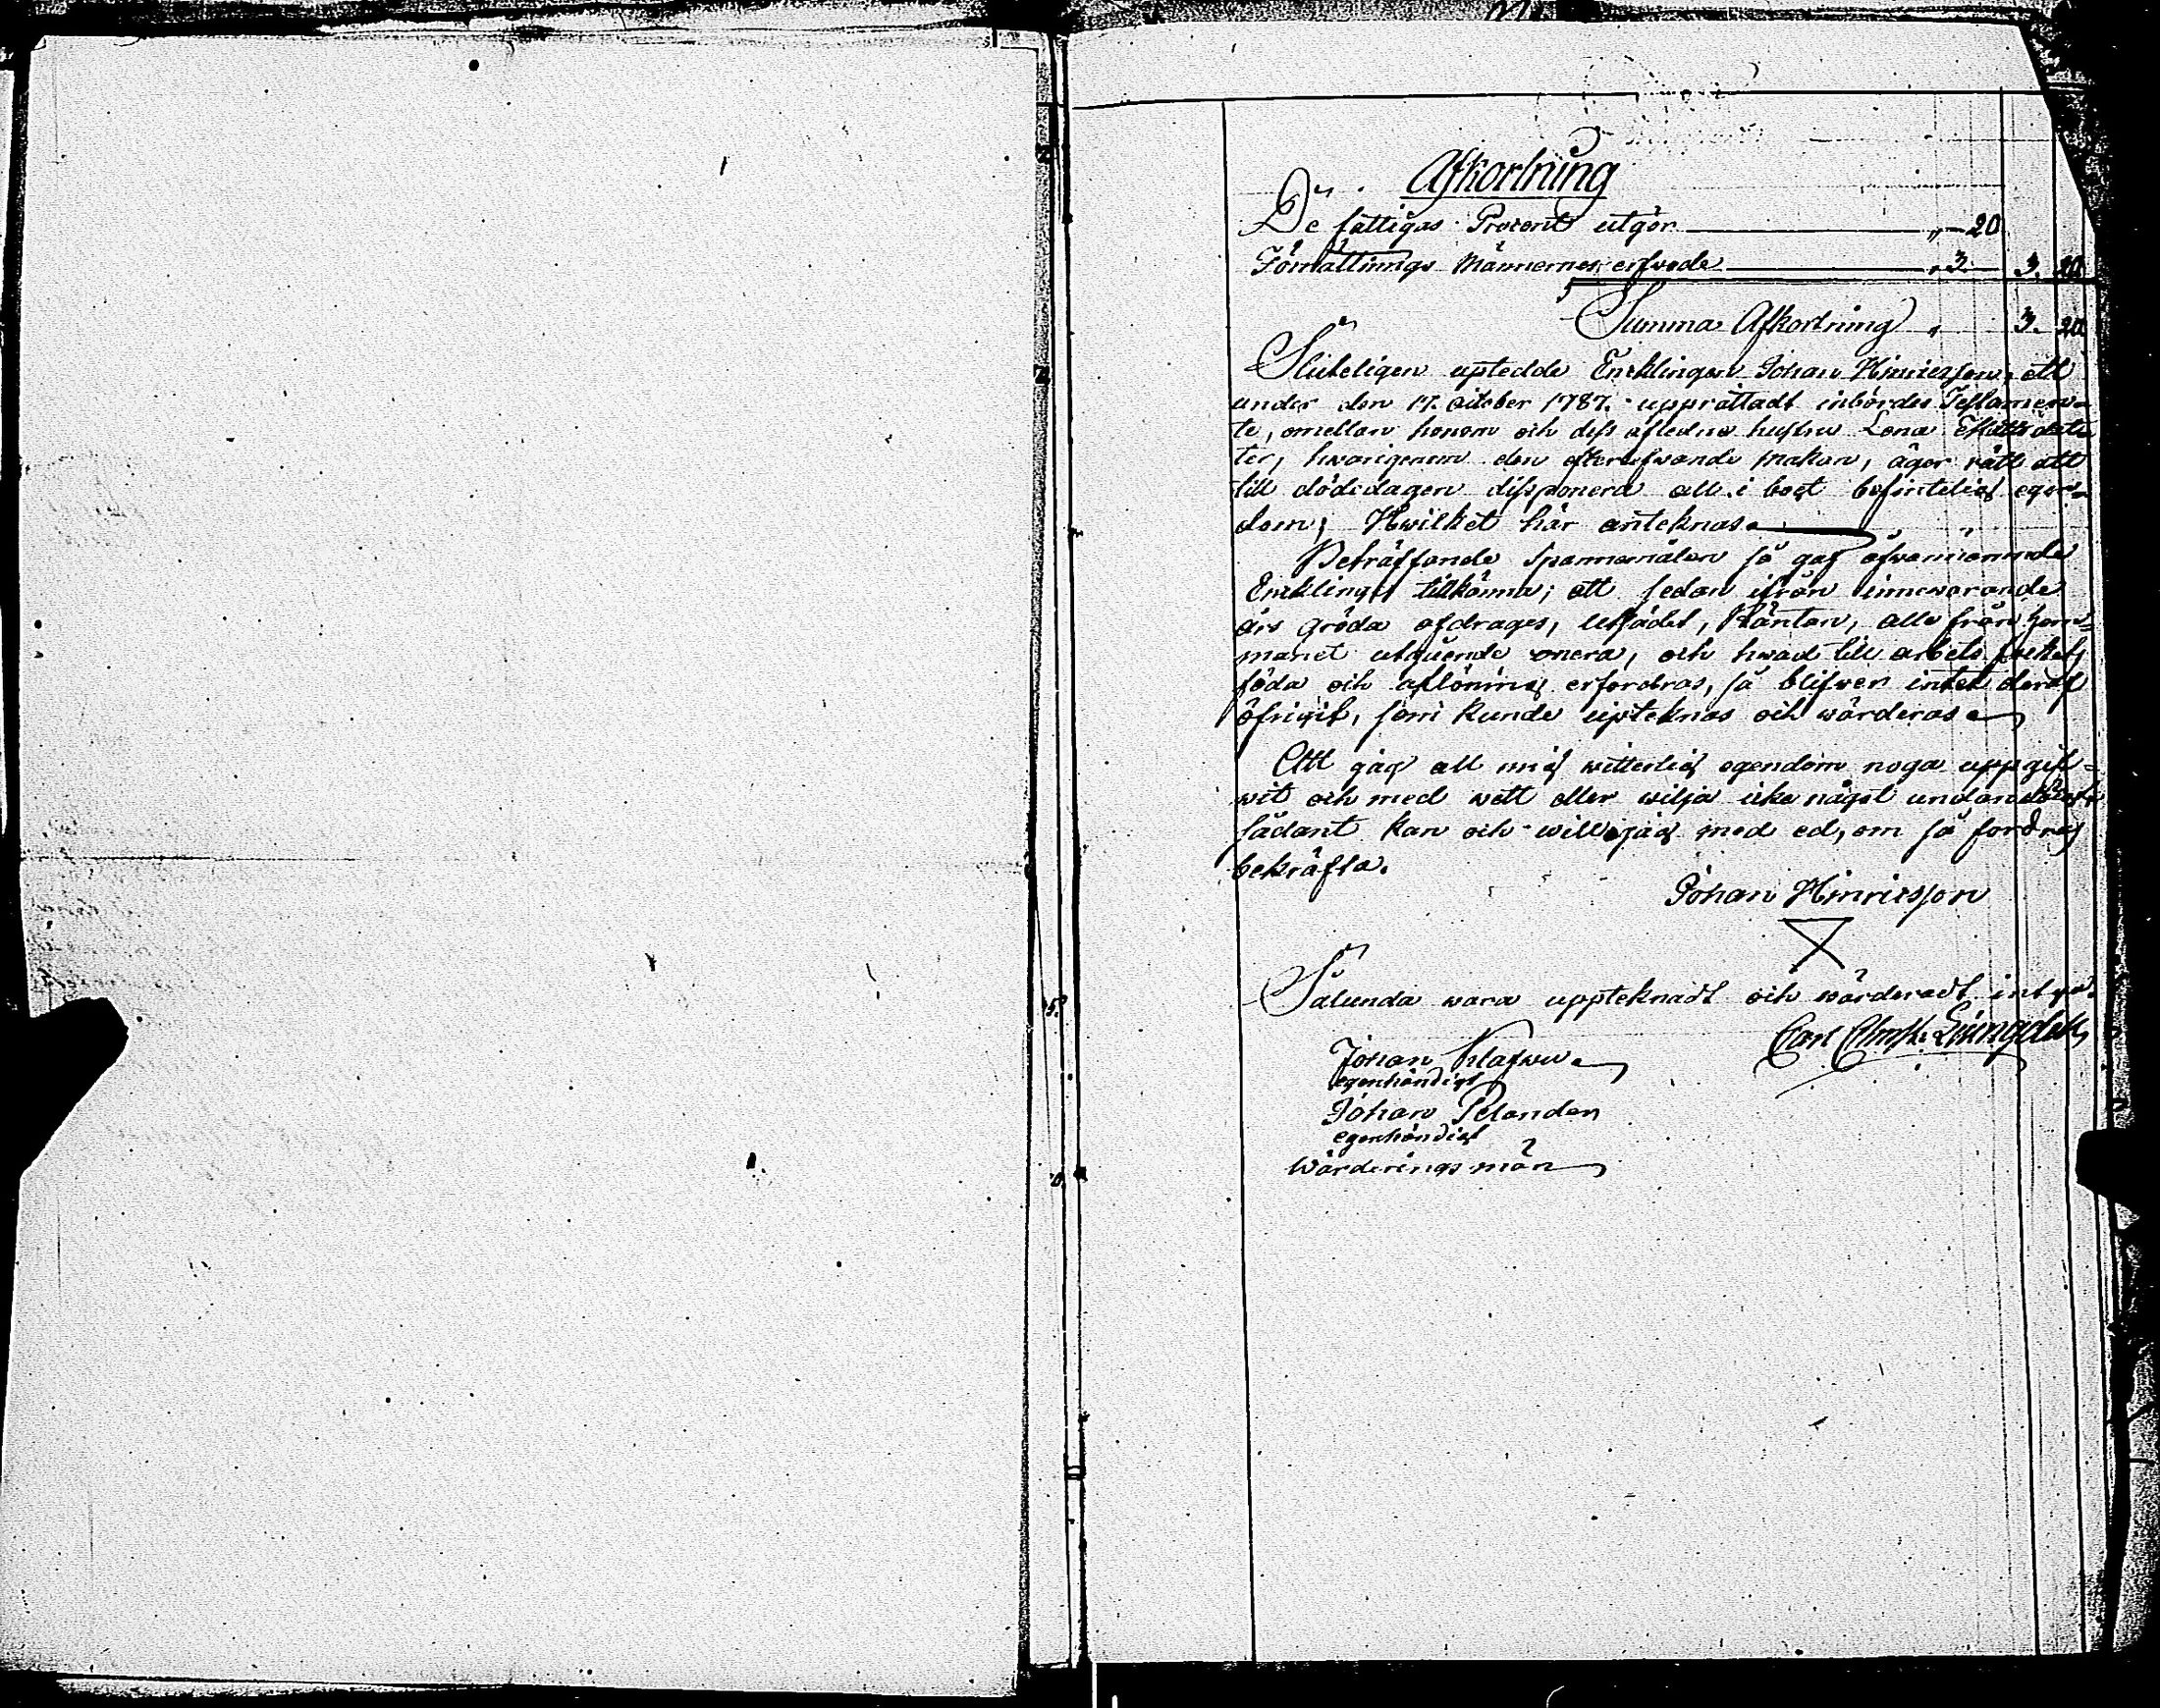 Afkortning
De fattigas Procent utgör " 20
Förrättnings Männernes arfwode " 3. 3. 20
Summa Afkortning " 3. 20
Sluteligen uptedde Encklingen Johan Hinricsson, ett
under den 17. October 1787. upprättadt inbördes Testamen-
te, emellan honom och dess afledne hustru Lena
ter, hwarigenom den efterlefwande makan, äger rätt att
till dödedagen disponera all i boet befintelig egen-
dom; Hwilket här anteknas.
Beträffande Spannemålen så gaf ofwannämnde
Enckling tillkänna; att sedan ifrån innewarande
års gröda afdrages, utsädet, Räntan, alla från hem-
manet utgående onera, och hwad till arbets folkets
föda och aflöning erfordras, så blifwer intet deraf
öfrigit, som kunde upteknas och wärderas.
Att jag all mig witterlig egendom noga uppgif-
wit och med wett eller wilja icke något undandölgt
sådant kan och will jag med ed, om så fordras
bekräfta.
Johan Hinricsson
Sålunda wara uppteknadt och wärderadt intyga.
Carl
Johan
egenhändigt
Johan Pelander
egenhändigt
Wärderings män